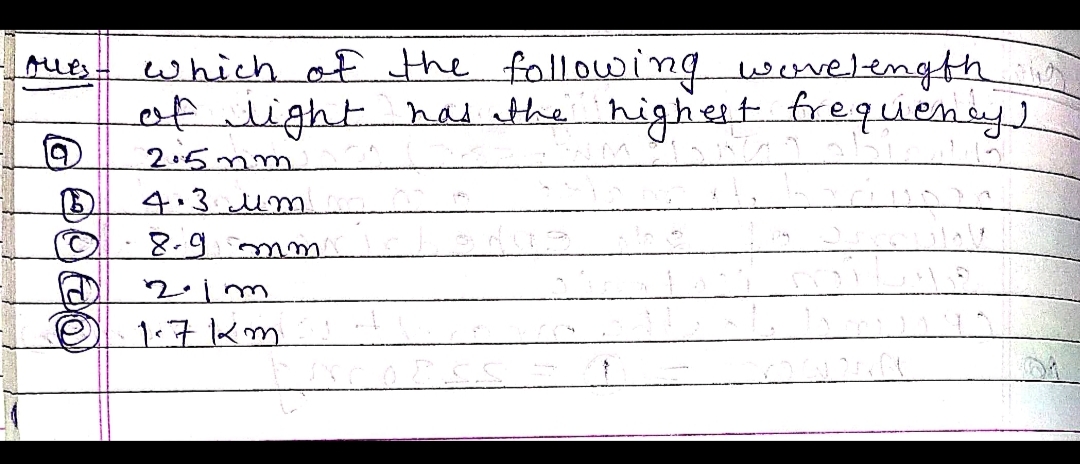 Ques - which of the following wavelength
of light has the highest frequency?
(a) 2.5 nm
(b) 4.3 um
(c) 8.9 mm
(d) 2.1 m
(e) 1.7 km